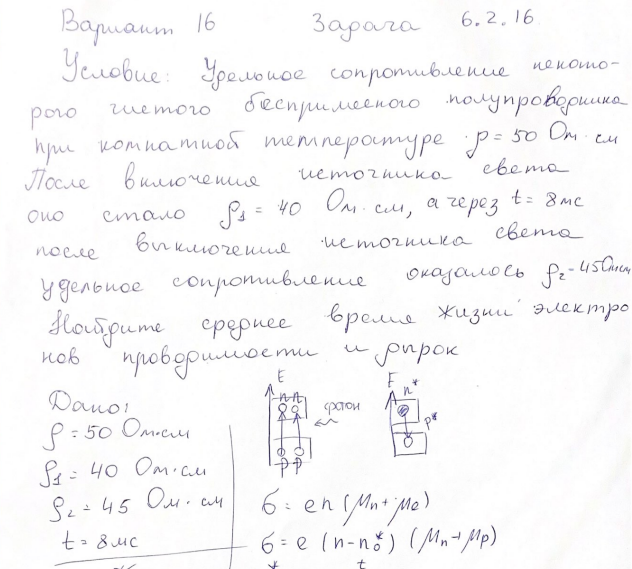 Вариант 16 Задача 6.2.16.
Условие: Удельное сопротивление некото-
рого чистого беспримесного полупроводника
при комнатной температуре ρ = 50 Ом·см
После включения источника света
оно стало ρ₁ = 40 Ом·см, а через t = 8мс
после выключения источника света
удельное сопротивление оказалось ρ₂ = 45 Ом·см
Найдите среднее время жизни электро
нов проводимости и дырок
Дано:
ρ = 50 Ом·см
ρ₁ = 40 Ом·см
ρ₂ = 45 Ом·см
t = 8мс
E
n n
фотон
p p
E
n*
p*
σ = en (μn + μe)
σ = e (n - n₀*) (μn + μp)